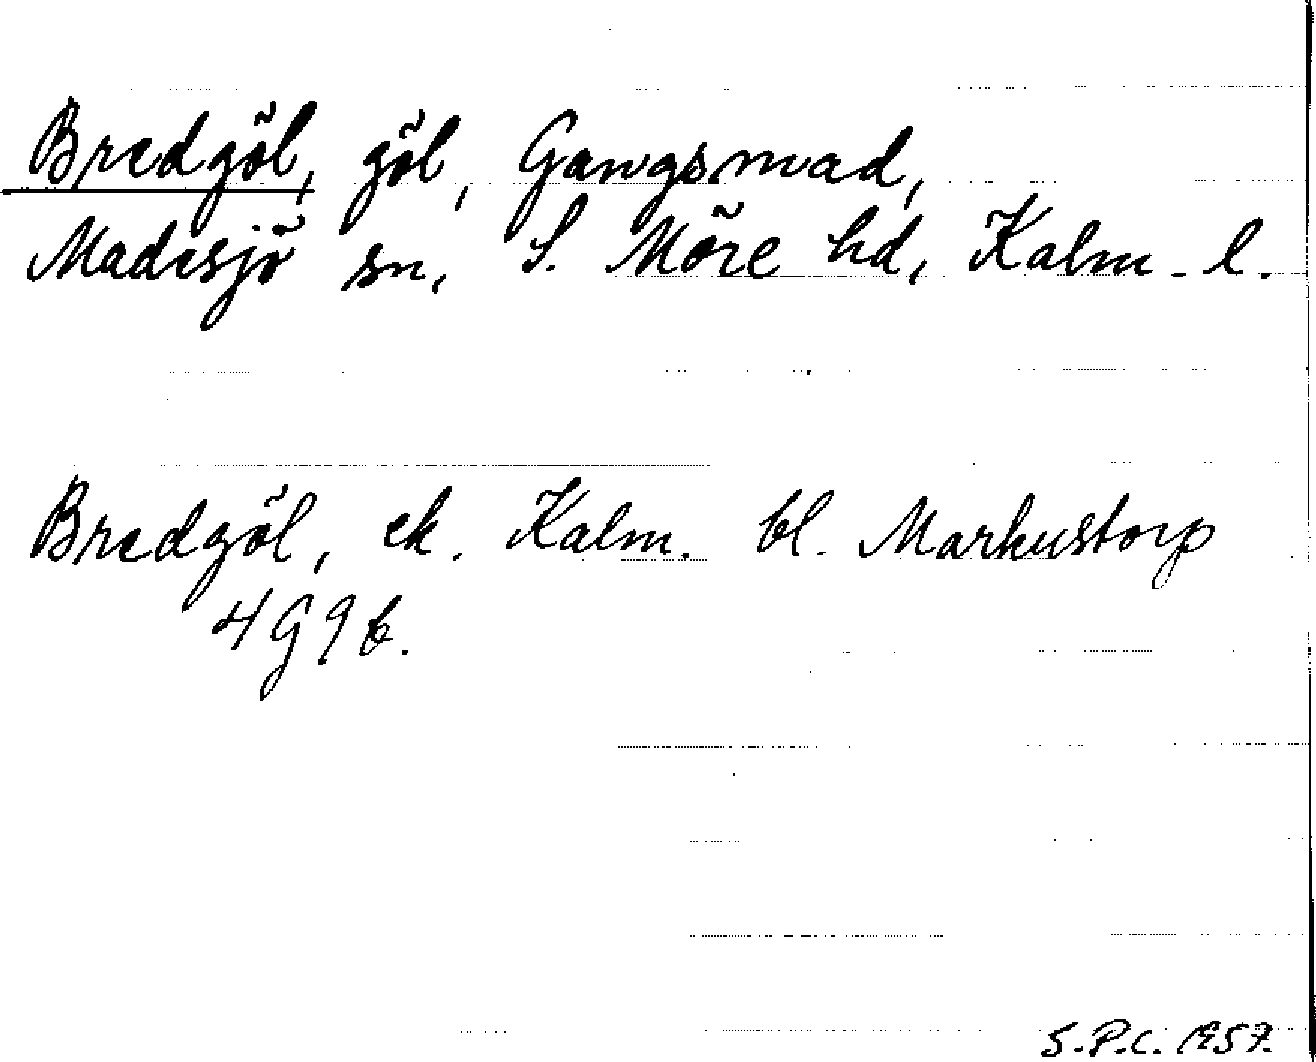 Bredgöl, göl, Gangsmad,
Madesjö sn, S. Möre hd, Kalm. l.
Bredgöl, ek. Kalm. bl. Markustorp
4G9b.
S.P.C. 1957.